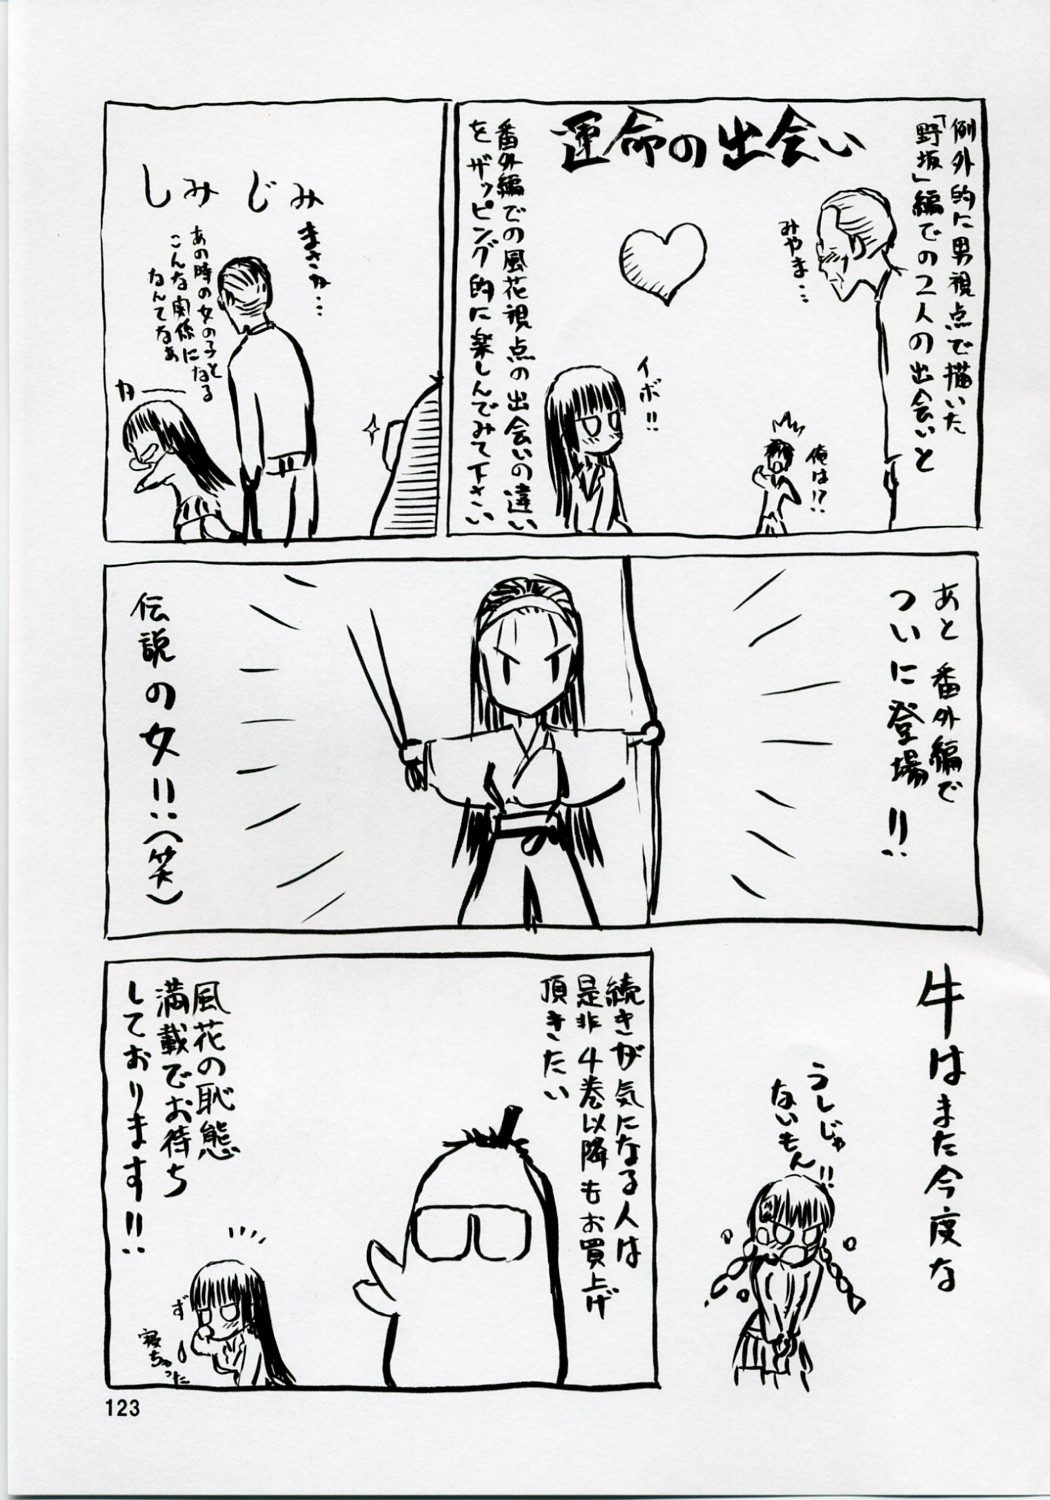 例外的に男視点で描いた
「野坂」編での2人の出会いと
みやま…
運命の出会い
俺は!?
イボ!!
番外編での風花視点の出会いの違い
をザッピング的に楽しんでみて下さい
しみじみ
まさか…
あの時の女の子と
こんな関係になる
なんてなぁ
カー
あと番外編で
ついに登場!!
伝説の女!!(笑)
牛はまた今度な
うしじゃ
ないもん!!
続きが気になる人は
是非4巻以降もお買上げ
頂きたい
風花の恥態
満載でお待ち
しております!!
ず
寝ちゃった
123